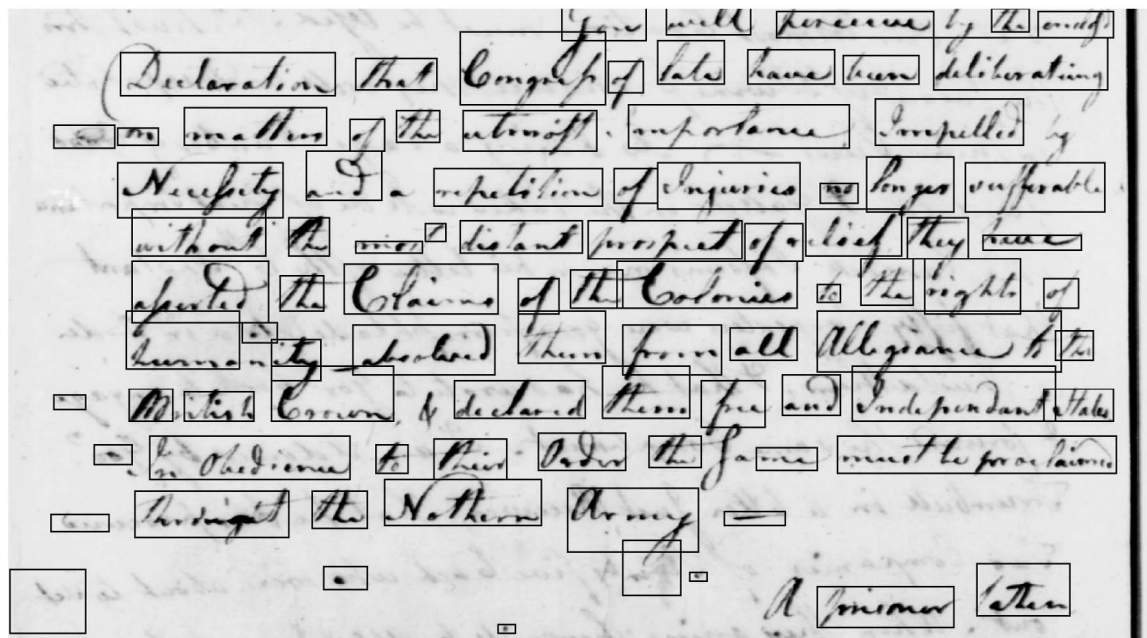 You will perceive by the enclosd
Declaration that Congress of late have been deliberating
on matters of the utmost Importance Impelled by
Necessity and a repetition of Injuries no longer sufferable
without the most distant prospect of relief they have
asserted the Claims of the Colonies to the rights of
humanity absolved them from all Allegiance to the
British Crown, & declared them free and Independant States
In Obedience to their Order the Same must be proclaimed
through the Nothern Army —
A prisoner taken